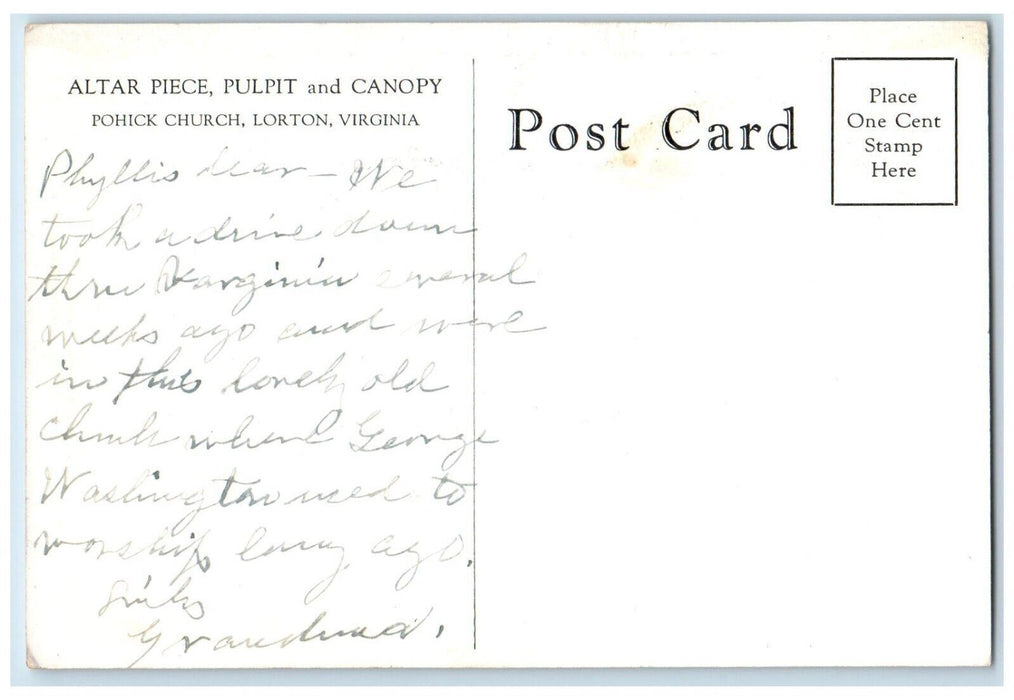 ALTAR PIECE, PULPIT and CANOPY
POHICK CHURCH, LORTON, VIRGINIA
Post Card
Place
One Cent
Stamp
Here
Phyllis dear – We
took a drive down
thru Varginia several
weeks ago and were
in this lovely old
church where George
Washington used to
worship long ago.
Grandma.